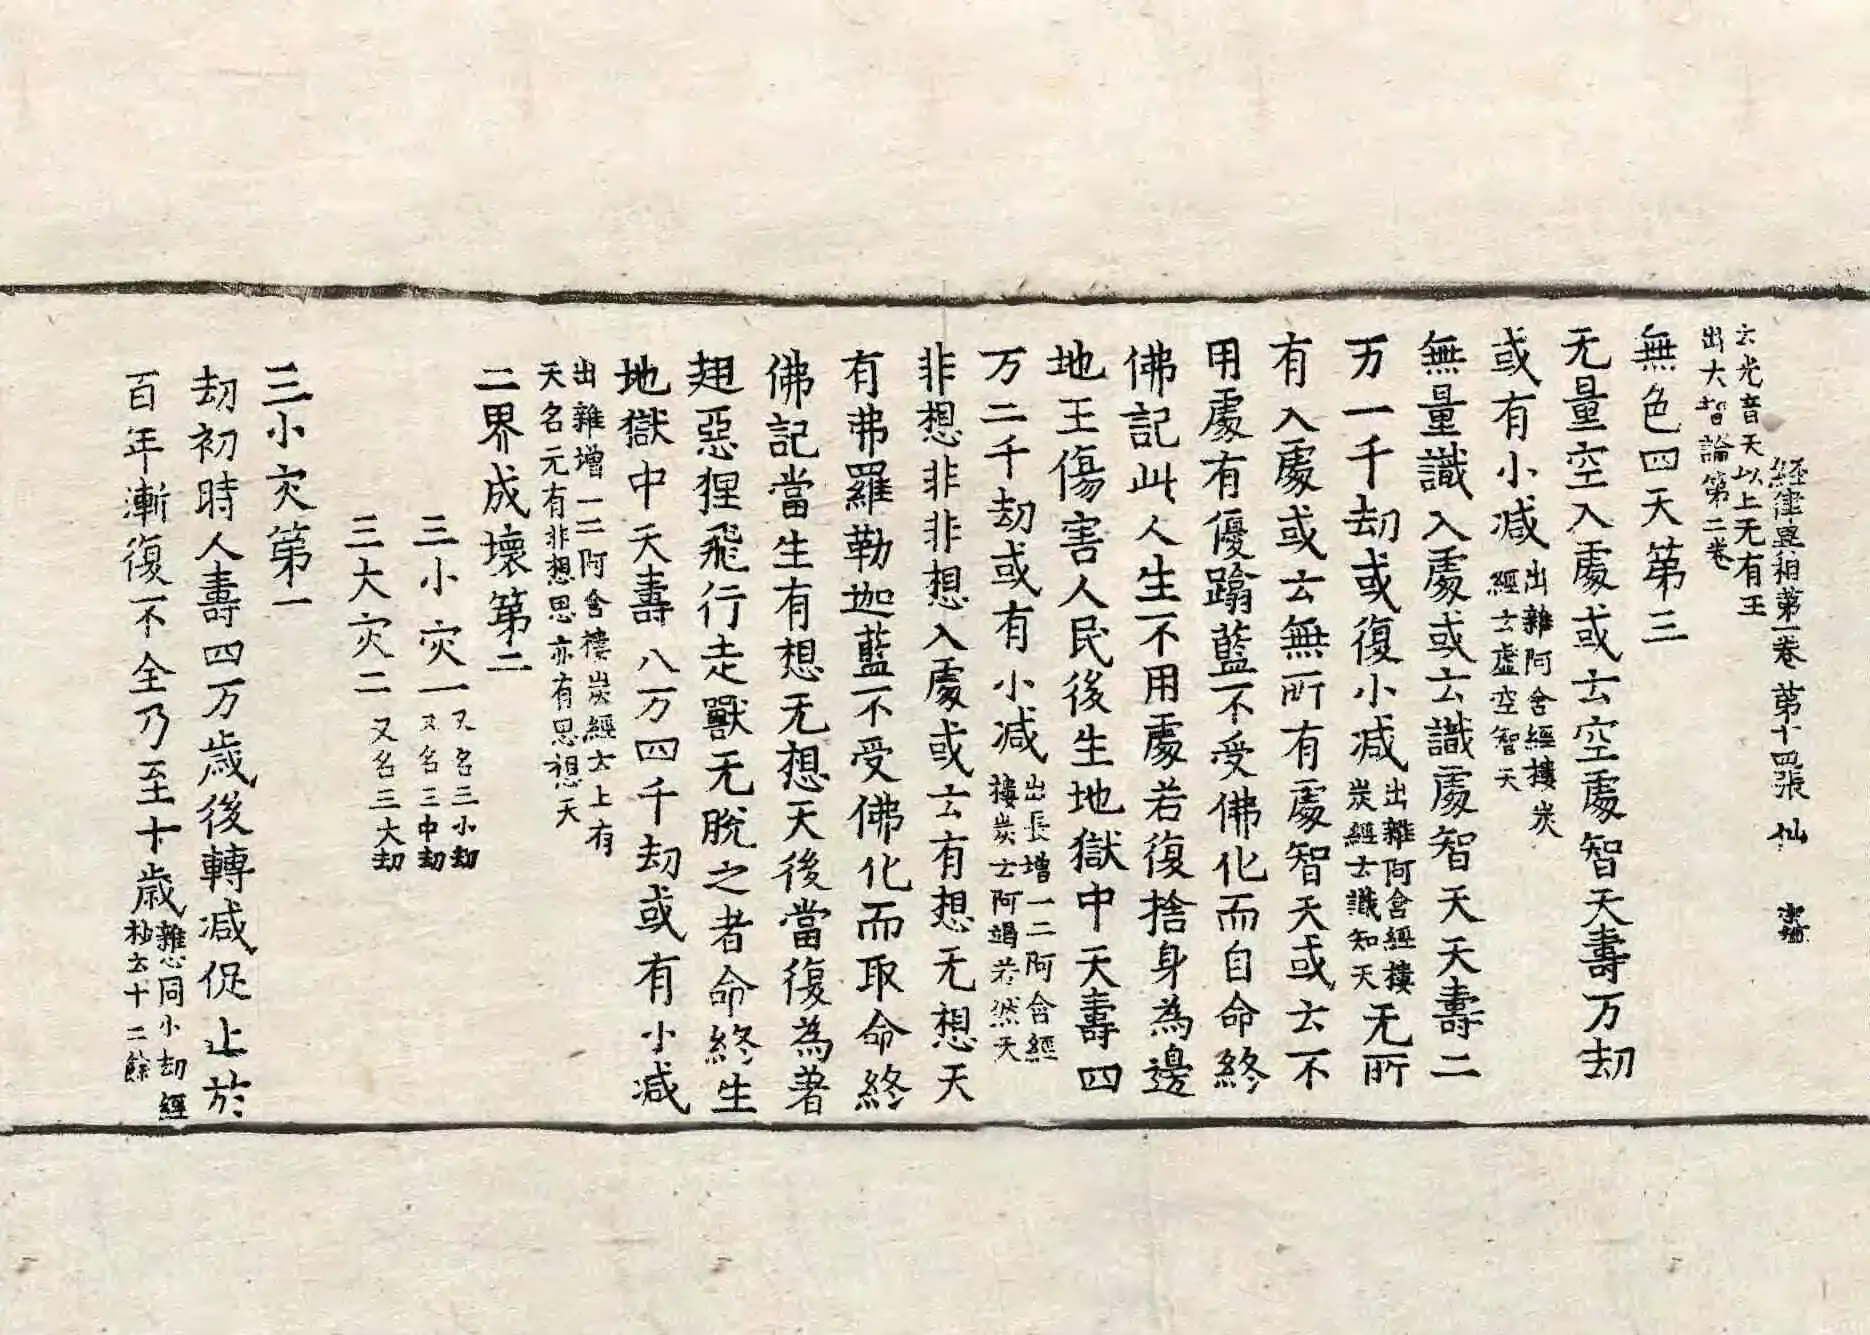 經律異相第一卷 第十四張 仙
云光音天以上无有王
出大智論第二卷
無色四天第三
无量空入處或云空處智天壽万劫
或有小减出雜阿含經樓炭
經云虛空智天
無量識入處或云識處智天天壽二
万一千劫或復小减出雜阿含經樓
炭經云識知天无所
有入處或云無所有處智天或云不
用處有優蹹藍不受佛化而自命終
佛記此人生不用處若復捨身為邊
地王傷害人民後生地獄中天壽四
万二千劫或有小减出長增一二阿含經
樓炭云阿竭若然天
非想非非想入處或云有想无想天
有弗羅勒迦藍不受佛化而取命終
佛記當生有想无想天後當復為著
翅惡狸飛行走獸无脫之者命終生
地獄中天壽八万四千劫或有小减
出雜增一二阿含樓炭經云上有
天名元有非想思亦有思想天
二界成壞第二
三小灾一又名三小劫
又名三中劫
三大灾二又名三大劫
三小灾第一
劫初時人壽四万歲後轉减促止於
百年漸復不全乃至十歲雜心同小劫經
抄云十二餘